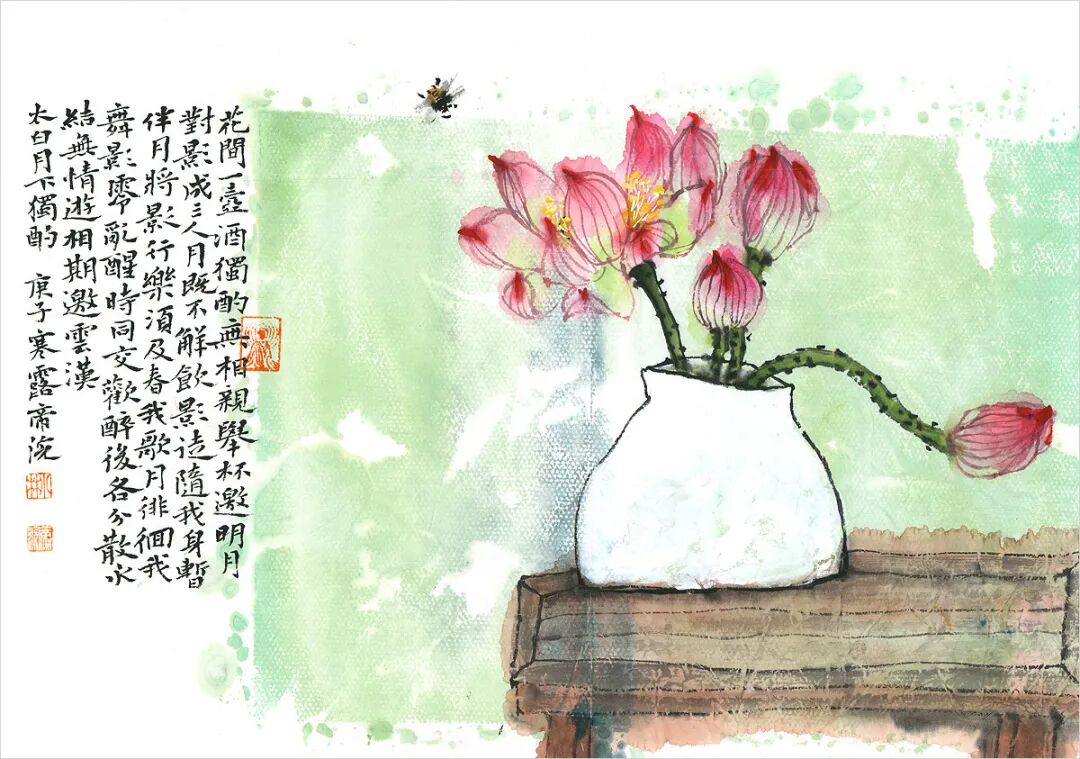 花間一壺酒獨酌無相親舉杯邀明月
對影成三人月既不解飲影徒隨我身暫
伴月將影行樂須及春我歌月徘徊我
舞影零亂醒時同交歡醉後各分散永
結無情遊相期邀雲漢
太白月下獨酌 庚子寒露帝浣